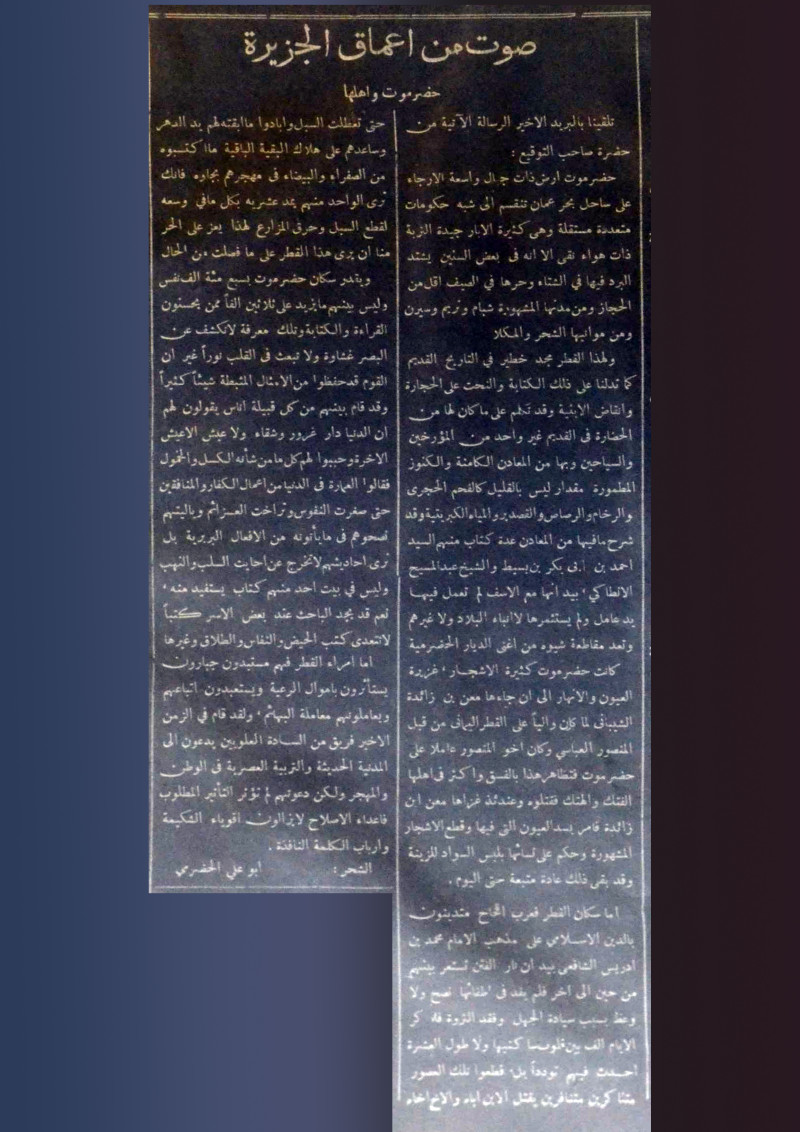 صوت من اعماق الجزيرة
حضرموت واهلها
تلقينا بالبريد الاخير الرسالة الآتية من
حضرة صاحب التوقيع :
حضرموت ارض ذات جبال واسعة الارجاء
على ساحل بحر عمان تنقسم الى شبه حكومات
متعددة مستقلة وهى كثيرة الابار جيدة التربة
ذات هواء نقى الا انه فى بعض السنين يشتد
البرد فيها في الشتاء وحرها في الصيف اقل من
الحجاز ومن مدنها المشهورة شبام وتريم وسيون
ومن موانيها الشحر والمكلا
ولهذا القطر مجد خطير في التاريخ القديم
كما تدلنا على ذلك الكتابة والنحت على الحجارة
وانقاض الابنية وقد تكلم على ما كان لها من
الحضارة فى القديم غير واحد من المؤرخين
والسياحين وبها من المعادن الكامنة والكنوز
المطمورة مقدار ليس بالقليل كالفحم الحجرى
والرخام والرصاص والقصدير والمياه الكبريتية وقد
شرح مافيها من المعادن عدة كتاب منهم السيد
احمد بن ابى بكر بن سميط والشيخ عبدالمسيح
الانطاكي ' بيد انها مع الاسف لم تعمل فيها
يد عامل ولم يستثمرها لا ابناء البلاد ولا غيرهم
وتعد مقاطعة شبوه من اغنى الديار الحضرمية
كانت حضرموت كثيرة الاشجار ' غزيرة
العيون والانهار الى ان جاءها معن بن زائدة
الشيبانى لما كان والياً على القطر اليمانى من قبل
المنصور العباسي وكان اخو المنصور عاملا على
حضرموت فتظاهر هذا بالفسق واكثر فى اهلها
الفتك والهتك فقتلوه وعندئذ غزاها معن ابن
زائدة فامر بسد العيون التى فيها وقطع الاشجار
المشهورة وحكم على نسائها بلبس السواد للزينة
وقد بقى ذلك عادة متبعة حتى اليوم .
اما سكان القطر فعرب اقحاح متدينون
بالدين الاسلامي على مذهب الامام محمد بن
ادريس الشافعى بيد ان نار الفتن تستعر بينهم
من حين الى اخر فلم يفد فى اطفائها نصح ولا
وعظ بسبب سيادة الجهل وفقد الثروة فلا كر
الايام الف بين قلوب ساكنيها ولا طول العشرة
احدث فيهم تودداً بل قطعوا تلك العصور
متناكرين متنافرين يقتل الابن اباه والاخ اخاه
حتى تعطلت السبل وابادوا ما ابقته لهم يد الدهر
وساعدهم على هلاك البقية الباقية ما اكتسبوه
من الصفراء والبيضاء فى مهجرهم بجاوه فانك
ترى الواحد منهم يمد عشيرته بكل مافي وسعه
لقطع السبل وحرق المزارع لهذا يعز على الحر
منا ان يرى هذا القطر على ما فصلت من الحال
ويقدر سكان حضرموت بسبع مئة الف نفس
وليس بينهم ما يزيد على ثلاثين الفاً ممن يحسنون
القراءة والكتابة وتلك معرفة لا تكشف عن
البصر غشاوة ولا تبعث فى القلب نوراً غير ان
القوم قد حفظوا من الامثال المثبطة شيئاً كثيراً
وقد قام بينهم من كل قبيلة اناس يقولون لهم
ان الدنيا دار غرور وشقاء ولا عيش الا عيش
الاخرة وحببوا لهم كل ما من شأنه الكسل والخمول
فقالوا العمارة فى الدنيا من اعمال الكفار والمنافقين
حتى صغرت النفوس وتراخت العزائم وياليتهم
نصحوهم فى ما يأتونه من الافعال البربرية بل
ترى احاديثهم لا تخرج عن احاديث السلب والنهب
وليس في بيت احد منهم كتاب يستفيد منه '
نعم قد يجد الباحث عند بعض الاسر كتباً
لا تتعدى كتب الحيض والنفاس والطلاق وغيرها
اما امراء القطر فهم مستبدون جبارون
يستأثرون باموال الرعية ويستعبدون اتباعهم
ويعاملونهم معاملة البهائم ' ولقد قام في الزمن
الاخير فريق من السادة العلويين يدعون الى
المدنية الحديثة والتربية العصرية فى الوطن
والمهجر ولكن دعوتهم لم تؤثر التأثير المطلوب
فاعداء الاصلاح لا يزالون اقوياء الشكيمة
وارباب الكلمة النافذة .
الشحر : ابو علي الحضرمي